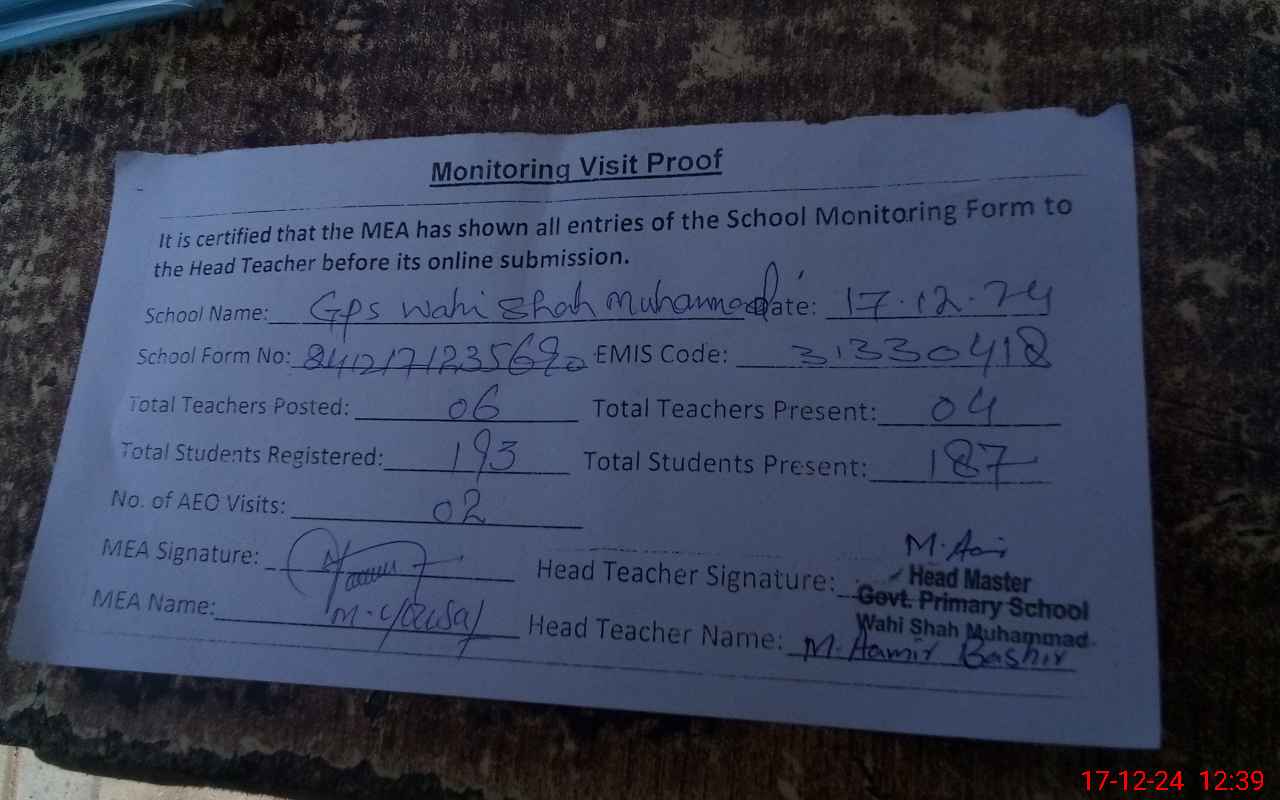 Monitoring Visit Proof
It is certified that the MEA has shown all entries of the School Monitoring Form to
the Head Teacher before its online submission.
School Name: GPS Wahi Shah Muhammad Date: 17.12.24
School Form No: EMIS Code: 31330418
Total Teachers Posted: 06 Total Teachers Present: 04
Total Students Registered: 193 Total Students Present: 187
No. of AEO Visits: 02
MEA Signature: Head Teacher Signature: M.
Head Master
Govt. Primary School
Wahi Shah Muhammad
MEA Name: M. Head Teacher Name: M. Aamir Bashir
17-12-24 12:39